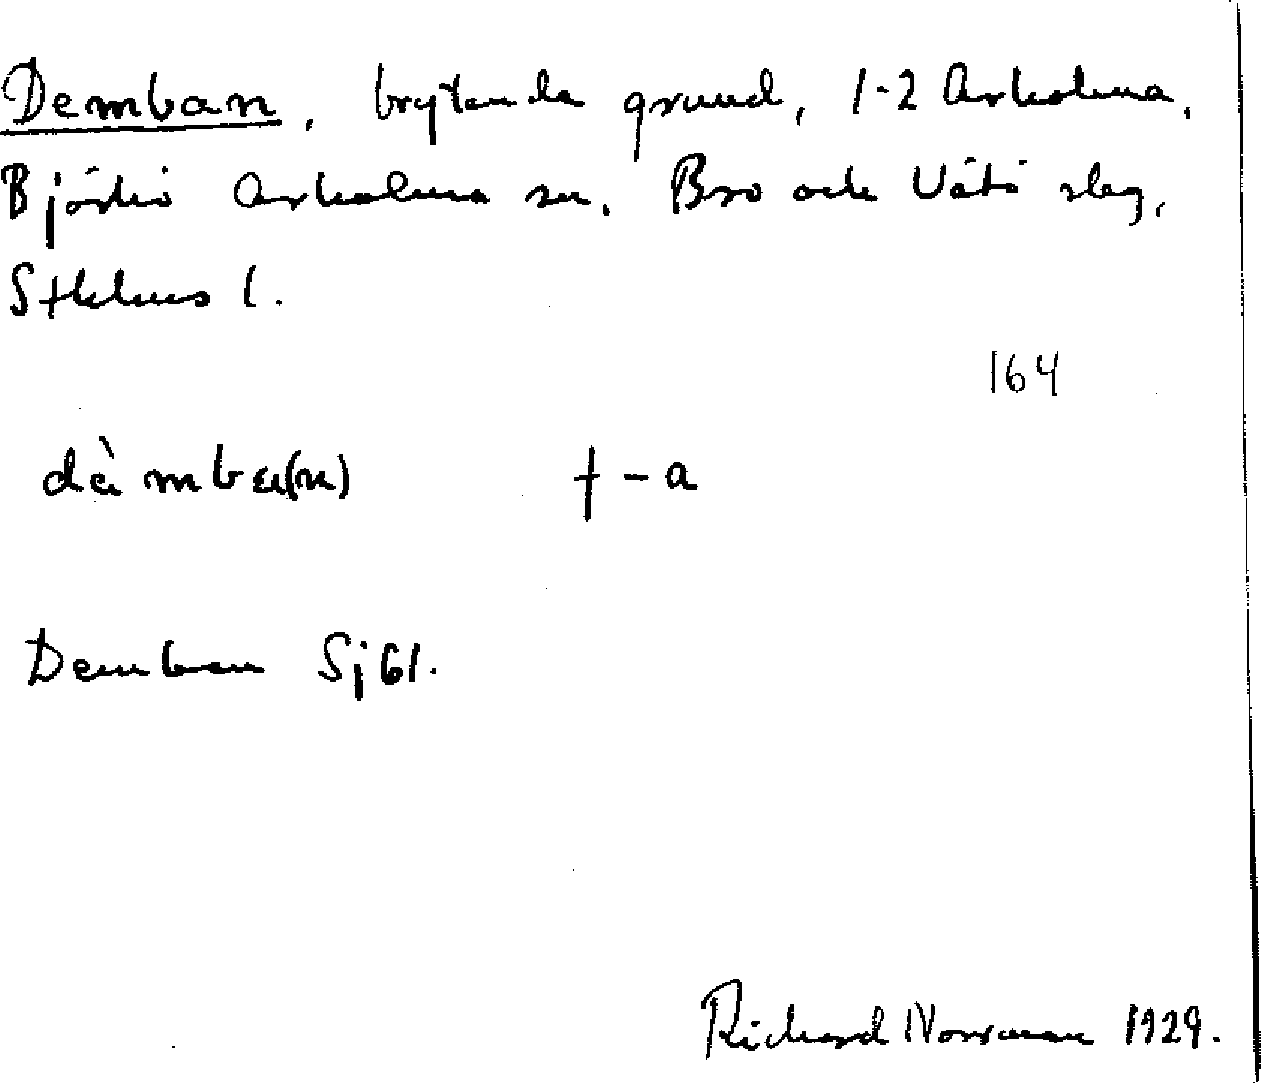 Demban, brytande grund, 1-2 Arholma,
Björkö Arholma sn. Bro och Vätö slg,
Sthlms l.
164
dà mba(n) † - a
Demban Sj61.
Richard Norrman 1929.